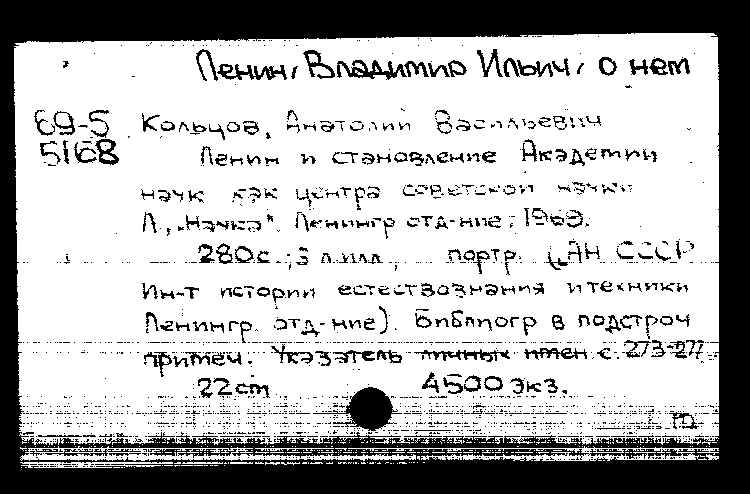 Ленин, Владимир Ильич, о нем
69-5 Кольцов, Анатолий Васильевич
5168 Ленин и становление Академии
наук как центра советской науки
Л., "Наука". Ленингр отд-ние, 1969.
280с.; 3 л.илл., портр. (АН СССР
Ин-т истории естествознания и техники
Ленингр. отд-ние). Библиогр в подстроч
примеч. Указатель личных имен с. 273-277
22cm 4500 экз.